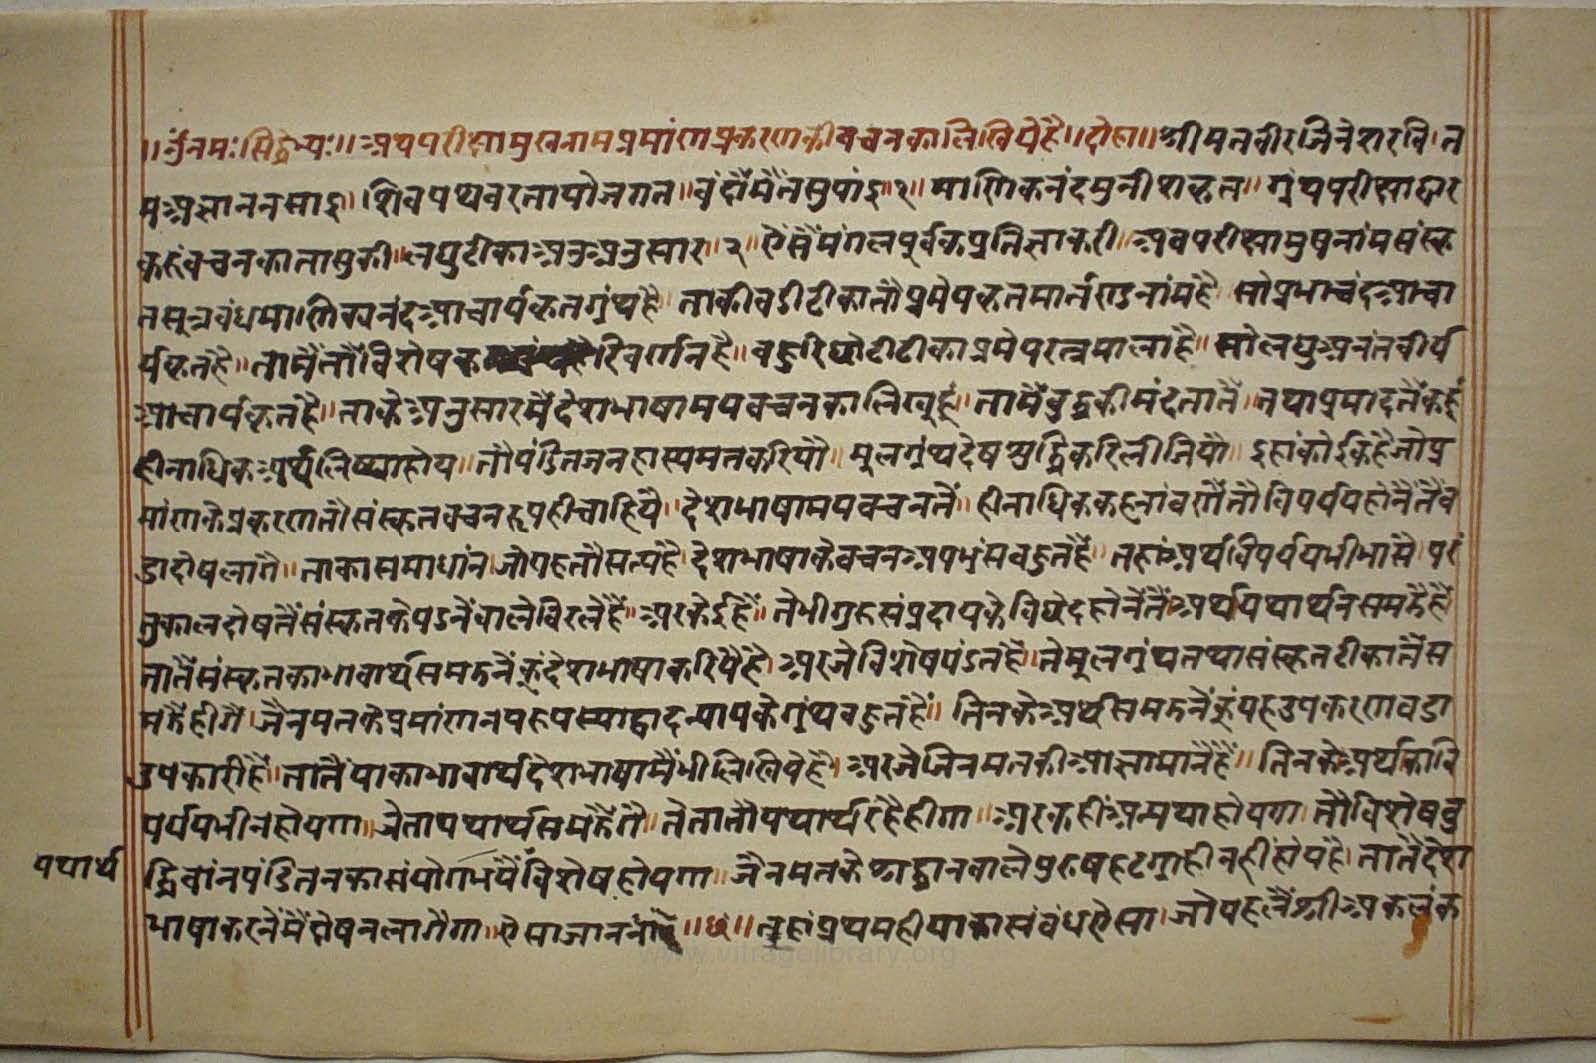 ॥ ॐ नमः सिद्धेभ्यः ॥ अथ परीक्षामुख नाम प्रमांण प्रकरण की वचनका लिखिये है ॥ दोहा ॥ श्रीमत वीर जिनेश रवि । त
म अज्ञान नसाइ ॥ शिवपथ वरतायो जगत ॥ वंदौं मैं तसु पांइ १ ॥ माणिकनंद मुनीश कृत ॥ ग्रंथ परीक्षा द्वार
करूं वचनका तासु की ॥ लघु टीका अनुसार ॥ २ ॥ ऐसैं मंगलपूर्वक प्रतिज्ञा करी ॥ अब परीक्षामुष नांम संस्कृ
त सूत्रबंध माणिक्यनंद आचार्यकृत ग्रंथ है ॥ ताकी बडी टीका तौ प्रमेयकमलमार्तंण्ड नांम है सो प्रभाचंद आचा
र्यकृत है ॥ तामैं तौं विशेष करि वर्णन है ॥ बहुरि छोटी टीका प्रमेयरत्नमाला है ॥ सो लघु अनंतवीर्य
आचार्यकृत है ॥ ताके अनुसार मैं देशभाषामय वचनका लिखूं हूं ॥ तामैं बुद्धि की मंदतातैं ॥ तथा प्रमादतैं कहूं
हीनाधिक अर्थ लिष्या होय ॥ तौ पंडितजन हास्य मत करियौ ॥ मूल ग्रंथ देष शुद्धि करि लीजियौ ॥ इहां कोई कहै जो प्र
मांण के प्रकरण तौ संस्कृत वचनरूप ही चाहियै ॥ देशभाषामय वचनतैं ॥ हीनाधिक कहनां वणैं तौ विपर्यय होनैंतैं व
डा दोष लागै ॥ ताका समाधांन जो यह तौ सत्य है देशभाषा के वचन अपभ्रंस बहुत हैं ॥ तहां अर्थ विपर्यय भी भासै परं
तु कालदोषतैं संस्कृत के पडनें वाले विरले हैं ॥ अर केई हैं ॥ ते भी गुरुसंप्रदाय के विछेद होनेंतैं अर्थ यथार्थ न समझै हैं
तातैं संस्कृत का भावार्थ समझनें कूं देशभाषा करियै है ॥ अर जे विशेष पंडत हैं ते मूल ग्रंथ तथा संस्कृत टीका तैं स
मझैहीगै जैनमत के प्रमांण नय रूप स्याद्वाद न्याय के ग्रंथ बहुत हैं ॥ तिनके अर्थ समझनें कूं यह प्रकरण बडा
उपकारी है ॥ तातैं याका भावार्थ देशभाषामैं भी लिखिये है ॥ अर जे जिनमत की आज्ञा मानैं हैं ॥ तिनके अर्थ का वि
पर्यय भी न होयगा जेता यथार्थ समझैंगै ॥ तेता तौ यथार्थ रहैहीगा ॥ अर कहीं अन्यथा होयगा तौ विशेष बु
यथार्थ
द्धिवांन पंडितन का संयोग भयैं विशेष होयगा जैनमत के श्रद्धानवाले पुरुष हठग्राही नहीं होय है ॥ तातैं देश
भाषा करनेंमैं दोष न लागैगा ॥ ऐसा जाननां ॥ छ ॥ तहां प्रथम ही याका संबंध ऐसा ॥ जो पहलैं श्री अकलंक
www.vitragelibrary.org